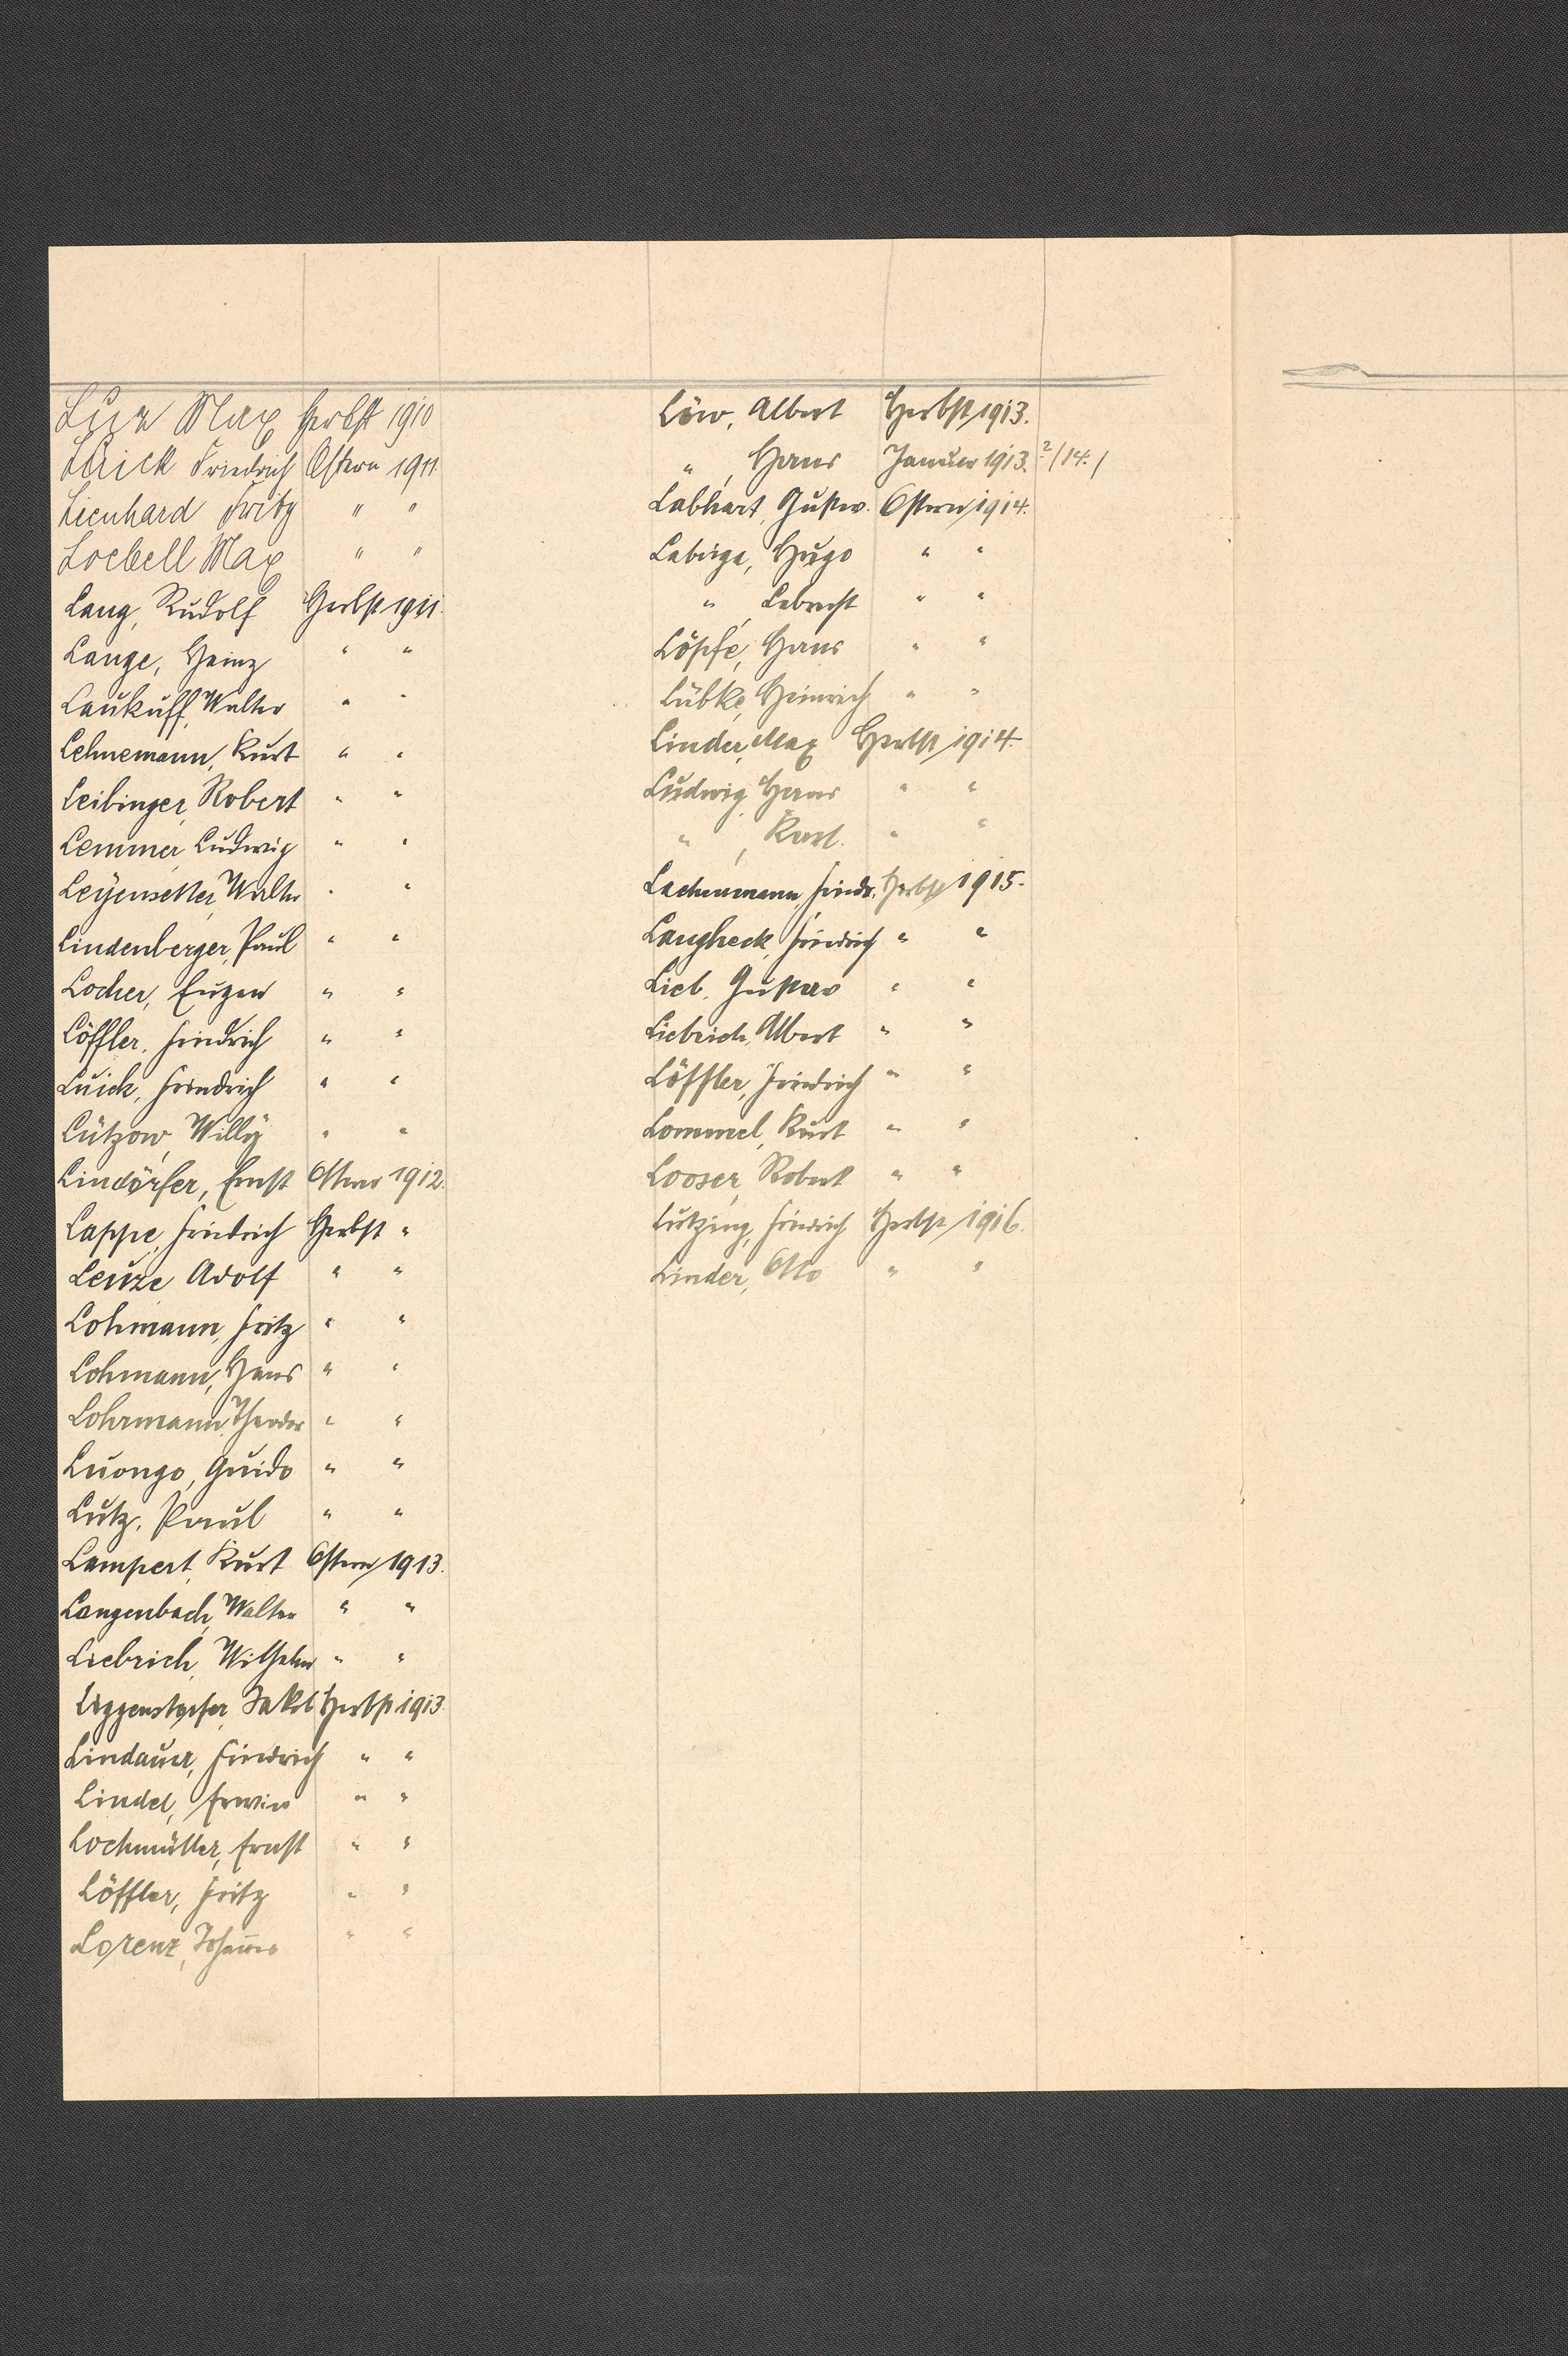 Lux Max Herbst 1910
Luick Friedrich Ostern 1911.
Lienhard Fritz " "
Loebell Max " "
Lang, Rudolf Herbst 1911.
Lange, Heinz " "
Laukuff, Walter " "
Lehnemann, Kurt " "
Leibinger, Robert " "
Lemmer, Ludwig " "
Leyensetter, Walter " "
Lindenberger, Paul " "
Locher, Eugen " "
Löffler, Friedrich " "
Luick, Friedrich " "
Lützow, Willÿ " "
Lindörfer, Ernst Ostern 1912.
Lappe, Friedrich Herbst "
Leuze, Adolf " "
Lohmann, Fritz " "
Lohmann, Hans " "
Lohrmann, Theodor " "
Luongo, Guido " "
Lutz, Paul " "
Lampert, Kurt Ostern 1913.
Langenbach, Walter " "
Liebrich, Wilhelm " "
Liggenstorfer, Jakob Herbst 1913
Lindauer, Friedrich " "
Lindel, Erwin " "
Lochmüller, Ernst " "
Löffler, Fritz " "
Lorenz, Johanna " "
Löw, Albert Herbst 1913.
" , Hans Januar 1913. ?/14./
Labhart, Gustav. Ostern 1914.
Hugo " "
" , Lebrecht " "
Löpfe, Hans " "
Lübke, Heinrich " "
Linder, Max Herbst 1914.
Ludwig, Hans " "
" , Karl. " "
Lachenmann, Friedr. Herbst 1915.
Langheck, Friedrich " "
Lieb, Gustav " "
Liebrich, Albert " "
Löffler, Friedrich " "
Lommel, Kurt " "
Looser, Robert " "
Lutzing, Friedrich Herbst 1916.
Linder, Otto " "